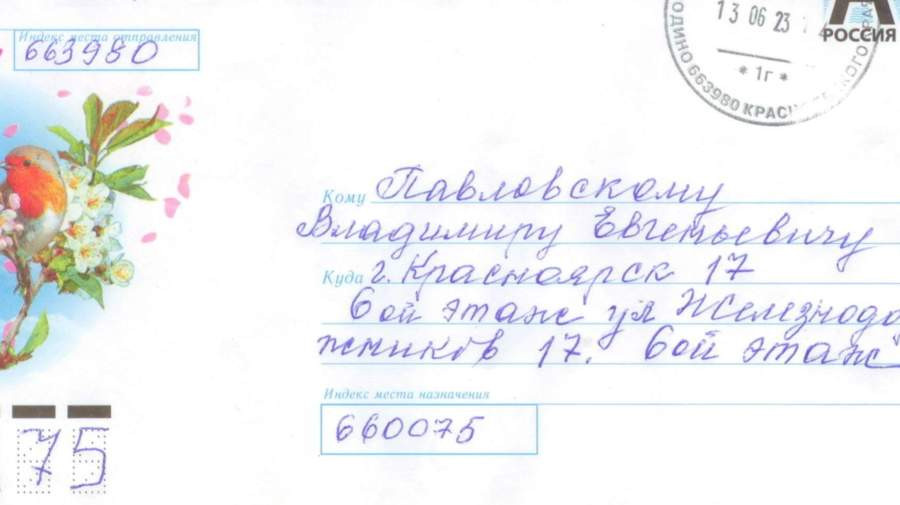 Индекс места отправления
663980
13 06 23
РОССИЯ
* 1г *
663980
Кому Павловскому
Владимиру Евгеньевичу
Куда г. Красноярск 17
6ой этаж ул Железнодо
жников 17. 6ой этаж
Индекс места назначения
660075
75